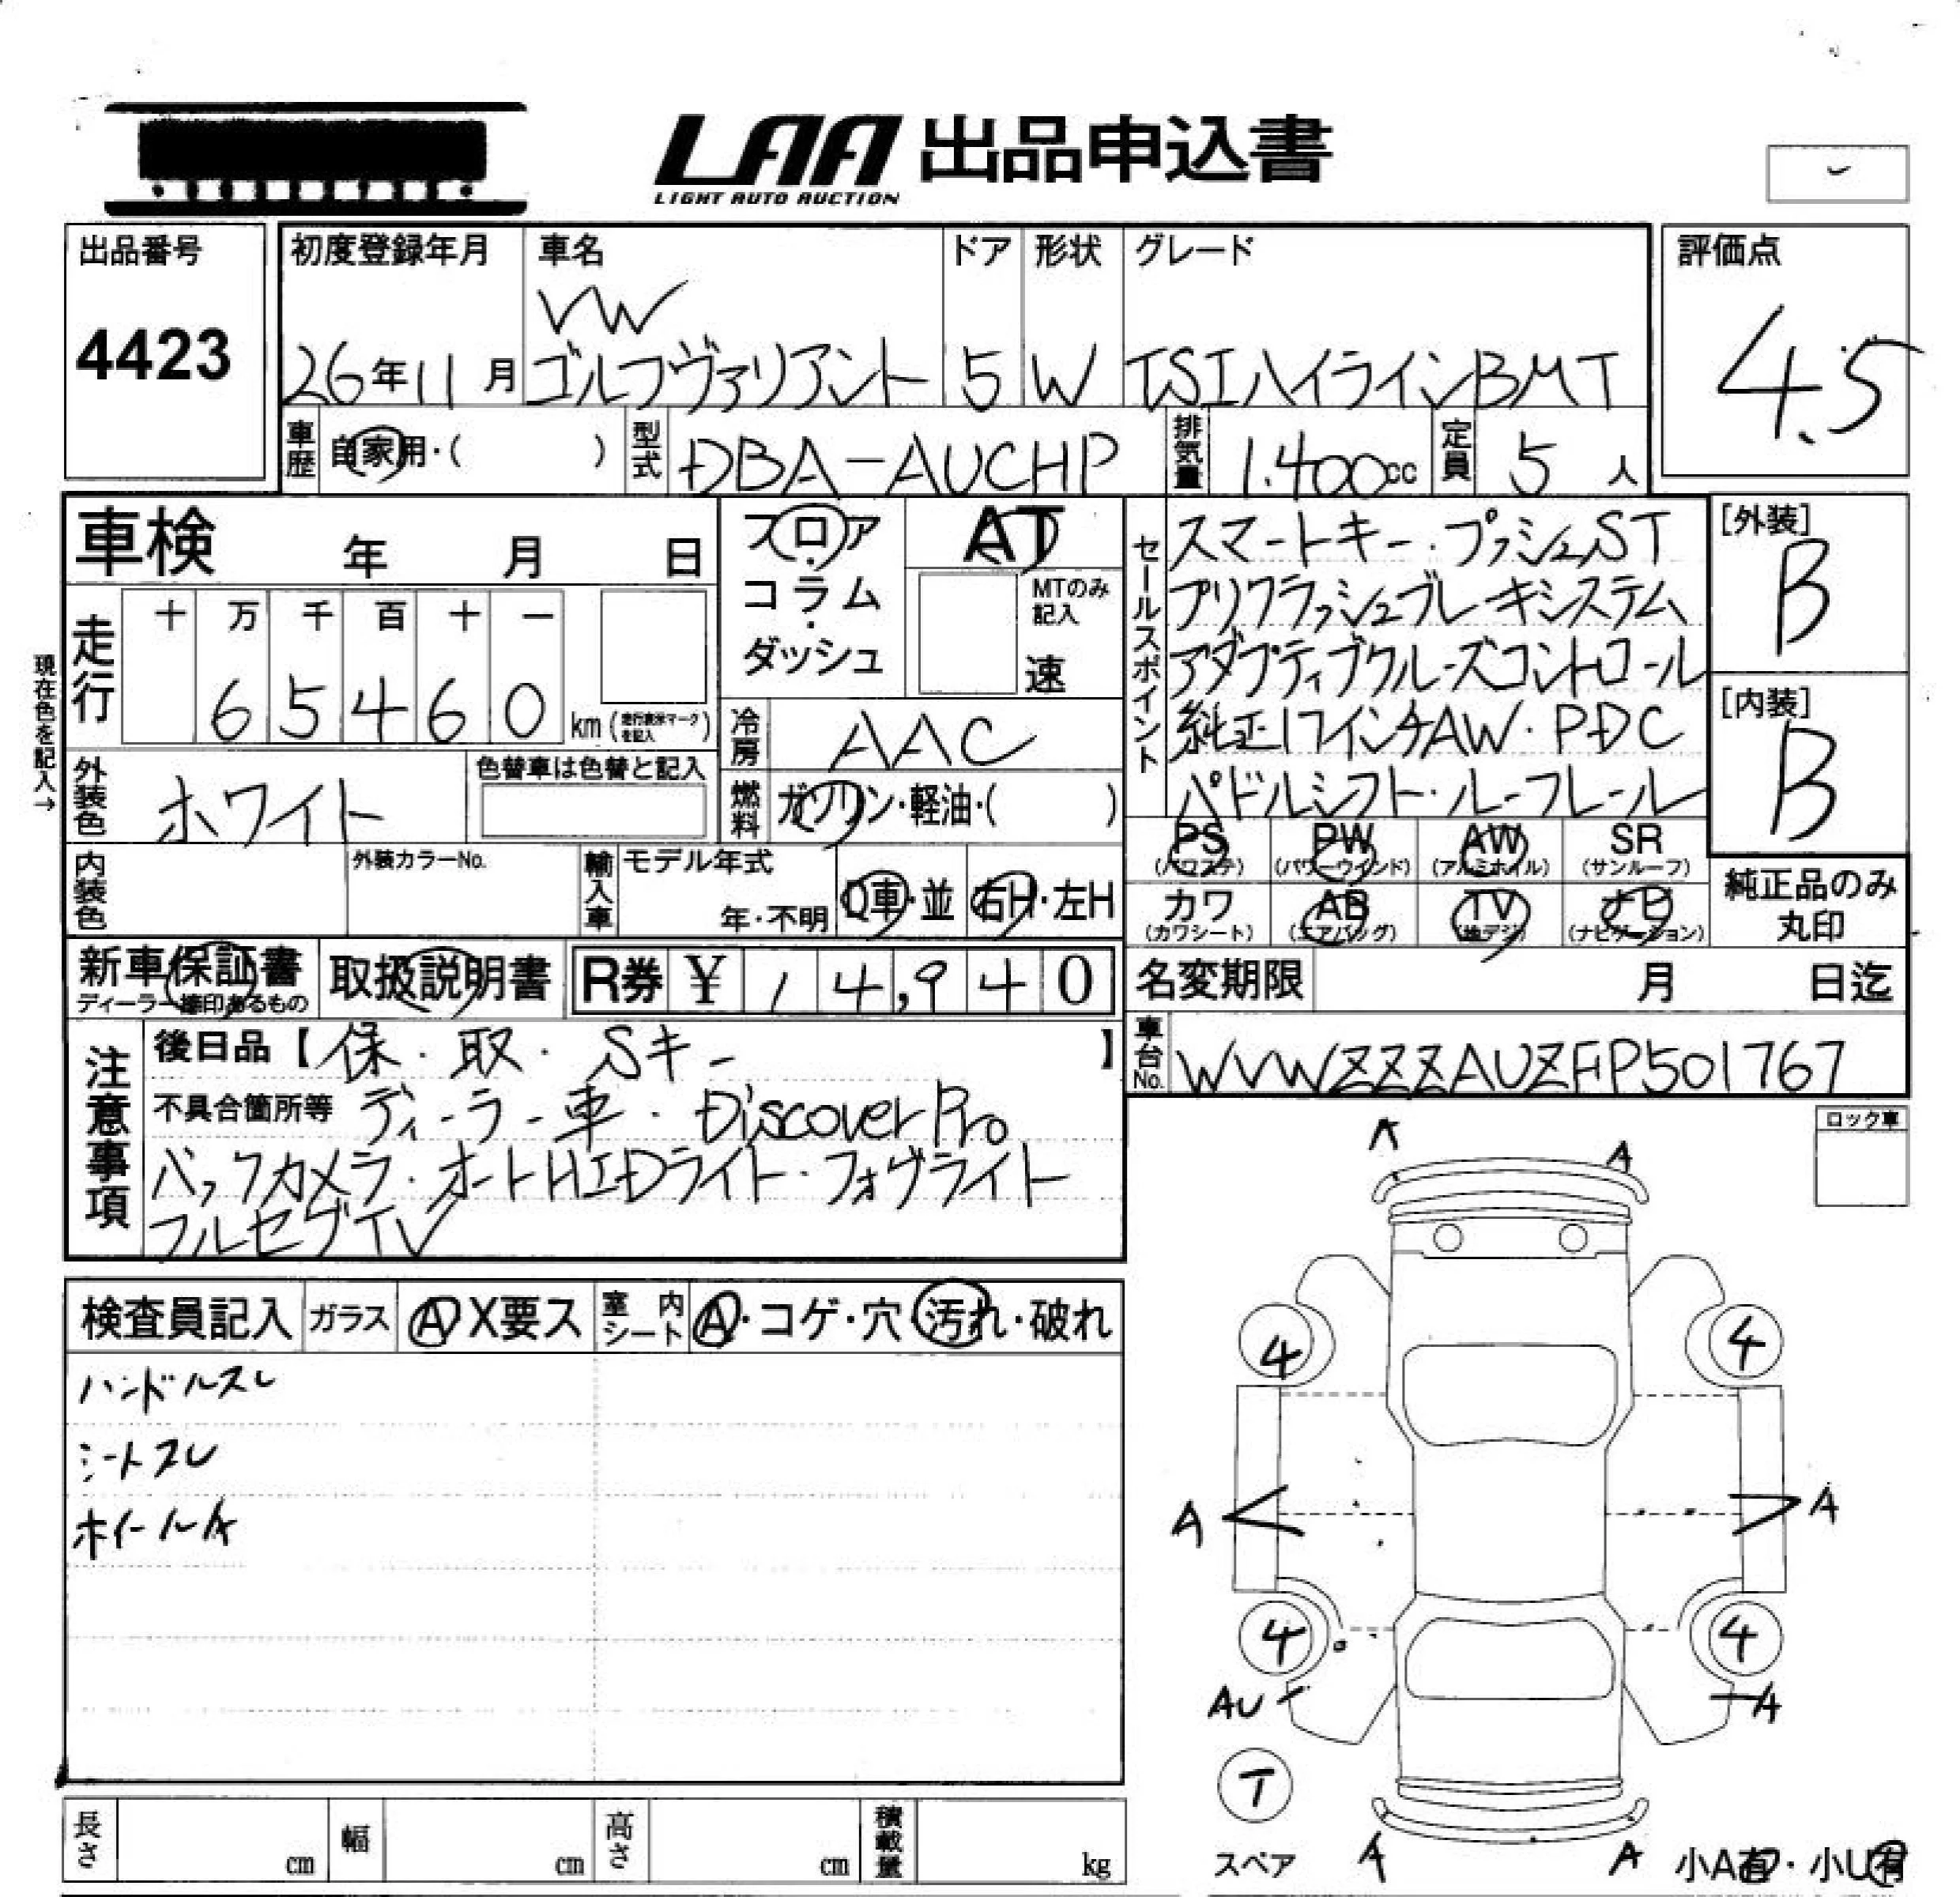 LAA 出品申込書
LIGHT AUTO AUCTION
出品番号
4423
初度登録年月
26年11月
車名
VW
ゴルフヴァリアント
ドア
5
形状
W
グレード
TSIハイラインBMT
評価点
4.5
車歴
自家用・( )
型式
DBA-AUCHP
排気量
1.400cc
定員
5人
車検 年 月 日
フロア・
コラム・
ダッシュ
AT
MTのみ
記入
速
セールスポイント
スマートキー・プッシュST
プリクラッシュブレーキシステム
アダプティブクルーズコントロール
純正17インチAW・PDC
パドルシフト・ルーフレール
[外装]
B
[内装]
B
現在色を記入→
走行
十 万 千 百 十 一
6 5 4 6 0 km (走行表示マークを記入)
冷房
AAC
外装色
ホワイト
色替車は色替と記入
燃料
ガソリン・軽油・( )
PS
(パワステ)
PW
(パワーウインド)
AW
(アルミホイル)
SR
(サンルーフ)
カワ
(カワシート)
AB
(エアバッグ)
TV
(地デジ)
ナビ
(ナビゲーション)
純正品のみ
丸印
内装色
外装カラーNo.
輸入車
モデル年式
年・不明
D車・並
右H・左H
新車保証書
ディーラー捺印あるもの
取扱説明書
R券 ¥ 14,940
名変期限 月 日迄
車台No.
WVWZZZAUZFP501767
注意事項
後日品【保・取・Sキー】
不具合箇所等 ディーラー車・Discover Pro
バックカメラ・オートHIDライト・フォグライト
フルセグTV
ロック車
A
A
検査員記入
ガラス
A X要ス
室内シート
A・コゲ・穴・汚れ・破れ
ハンドルスレ
シートスレ
ホイールA
4
4
A
A
4
4
AU
A
T
スペア
A
A
小A有・小U有
長さ cm
幅 cm
高さ cm
積載量 kg